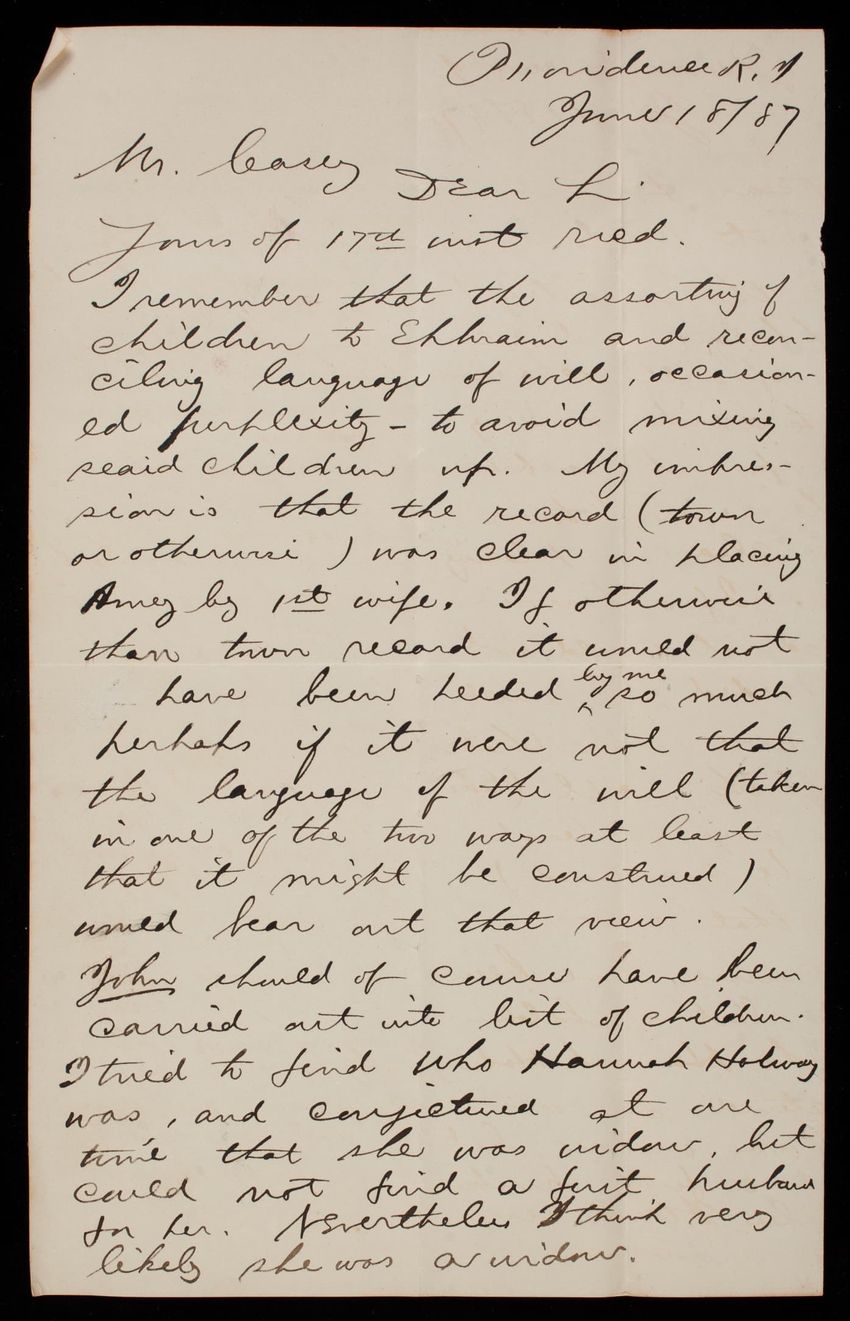 Providence R. I
June 18/87
Mr. Casey
Dear Sir
Yours of 17th inst recd.
I remember that the assorting of
children to Ephraim and recon-
ciling language of will, occasion-
ed perplexity - to avoid mixing
seaid children up. My impres-
sion is that the record (town
or otherwise) was clear in placing
Amey by 1st wife. If otherwise
than town record it would not
have been heeded by me so much
perhaps if it were not that
the language of the will (taken
in one of the two ways at least
that it might be construed)
would bear out that view.
John should of course have been
carried out into list of children.
I tried to find who Hannah Holway
was, and conjectured at one
time that she was widow, but
could not find a first husband
for her. Nevertheless I think very
likely she was a widow.